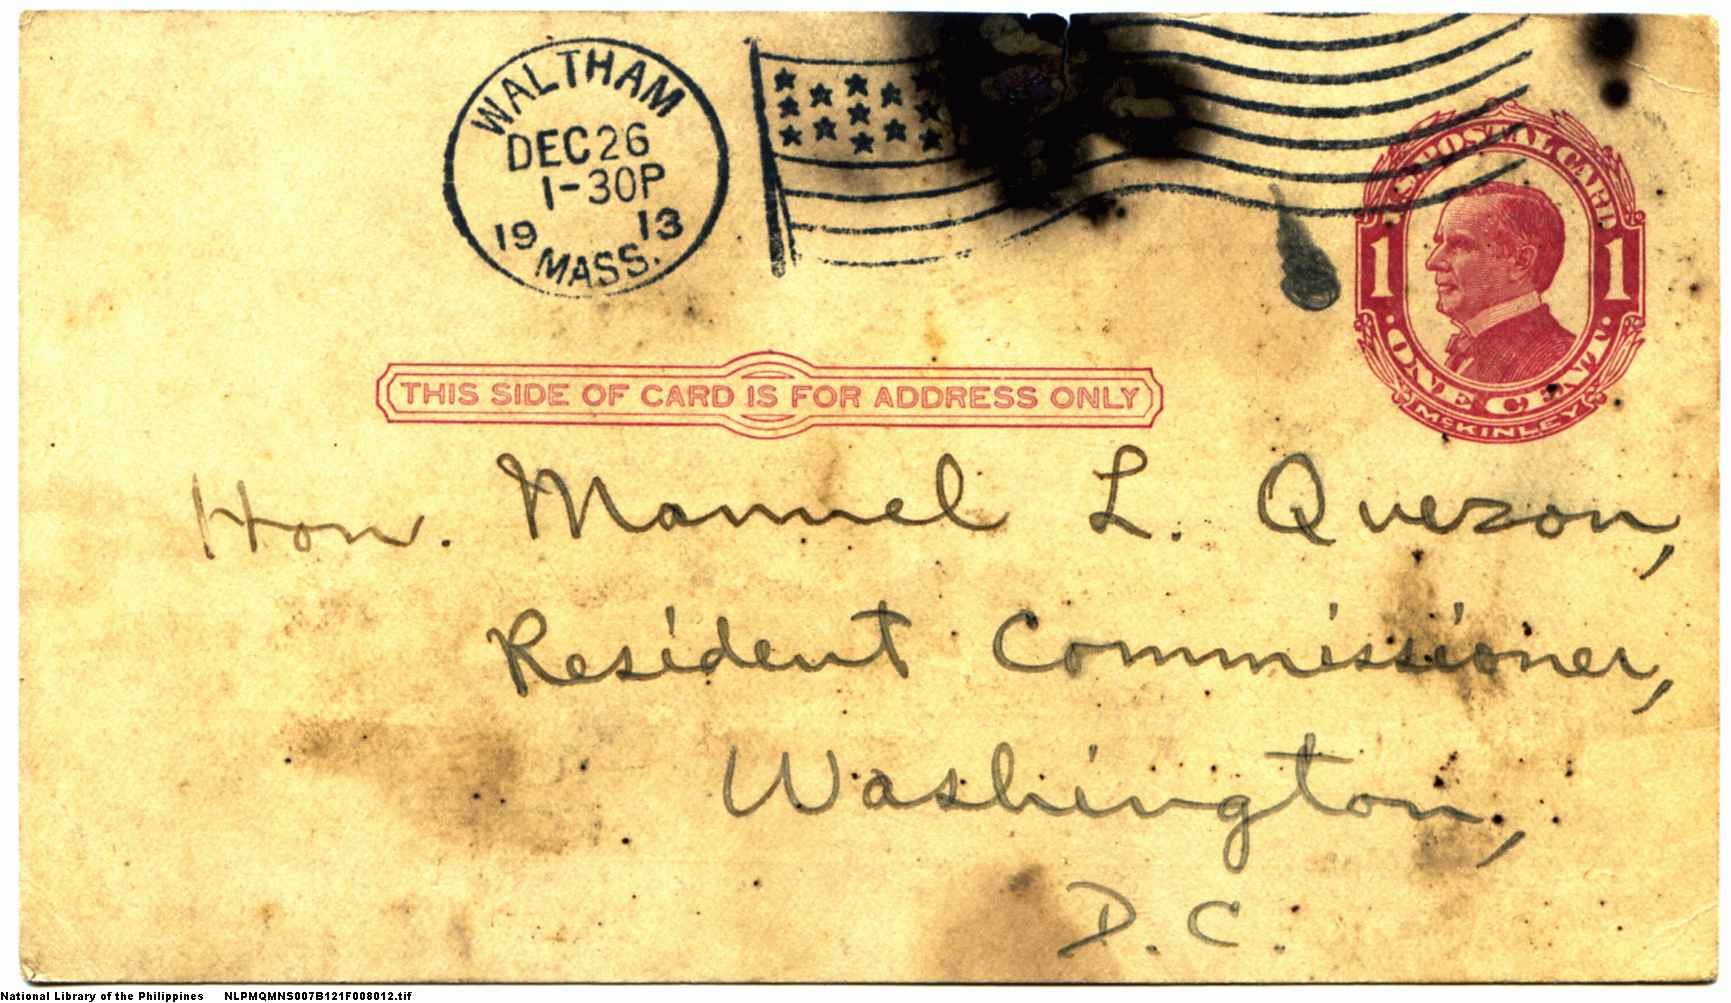 WALTHAM
DEC 26
1-30P
19 13
MASS.
U.S. POSTAL CARD
1 1
ONE CENT
McKINLEY
THIS SIDE OF CARD IS FOR ADDRESS ONLY
Hon. Manuel L. Quezon,
Resident Commissioner,
Washington,
D.C.
National Library of the Philippines NLPMQMNS007B121F008012.tif